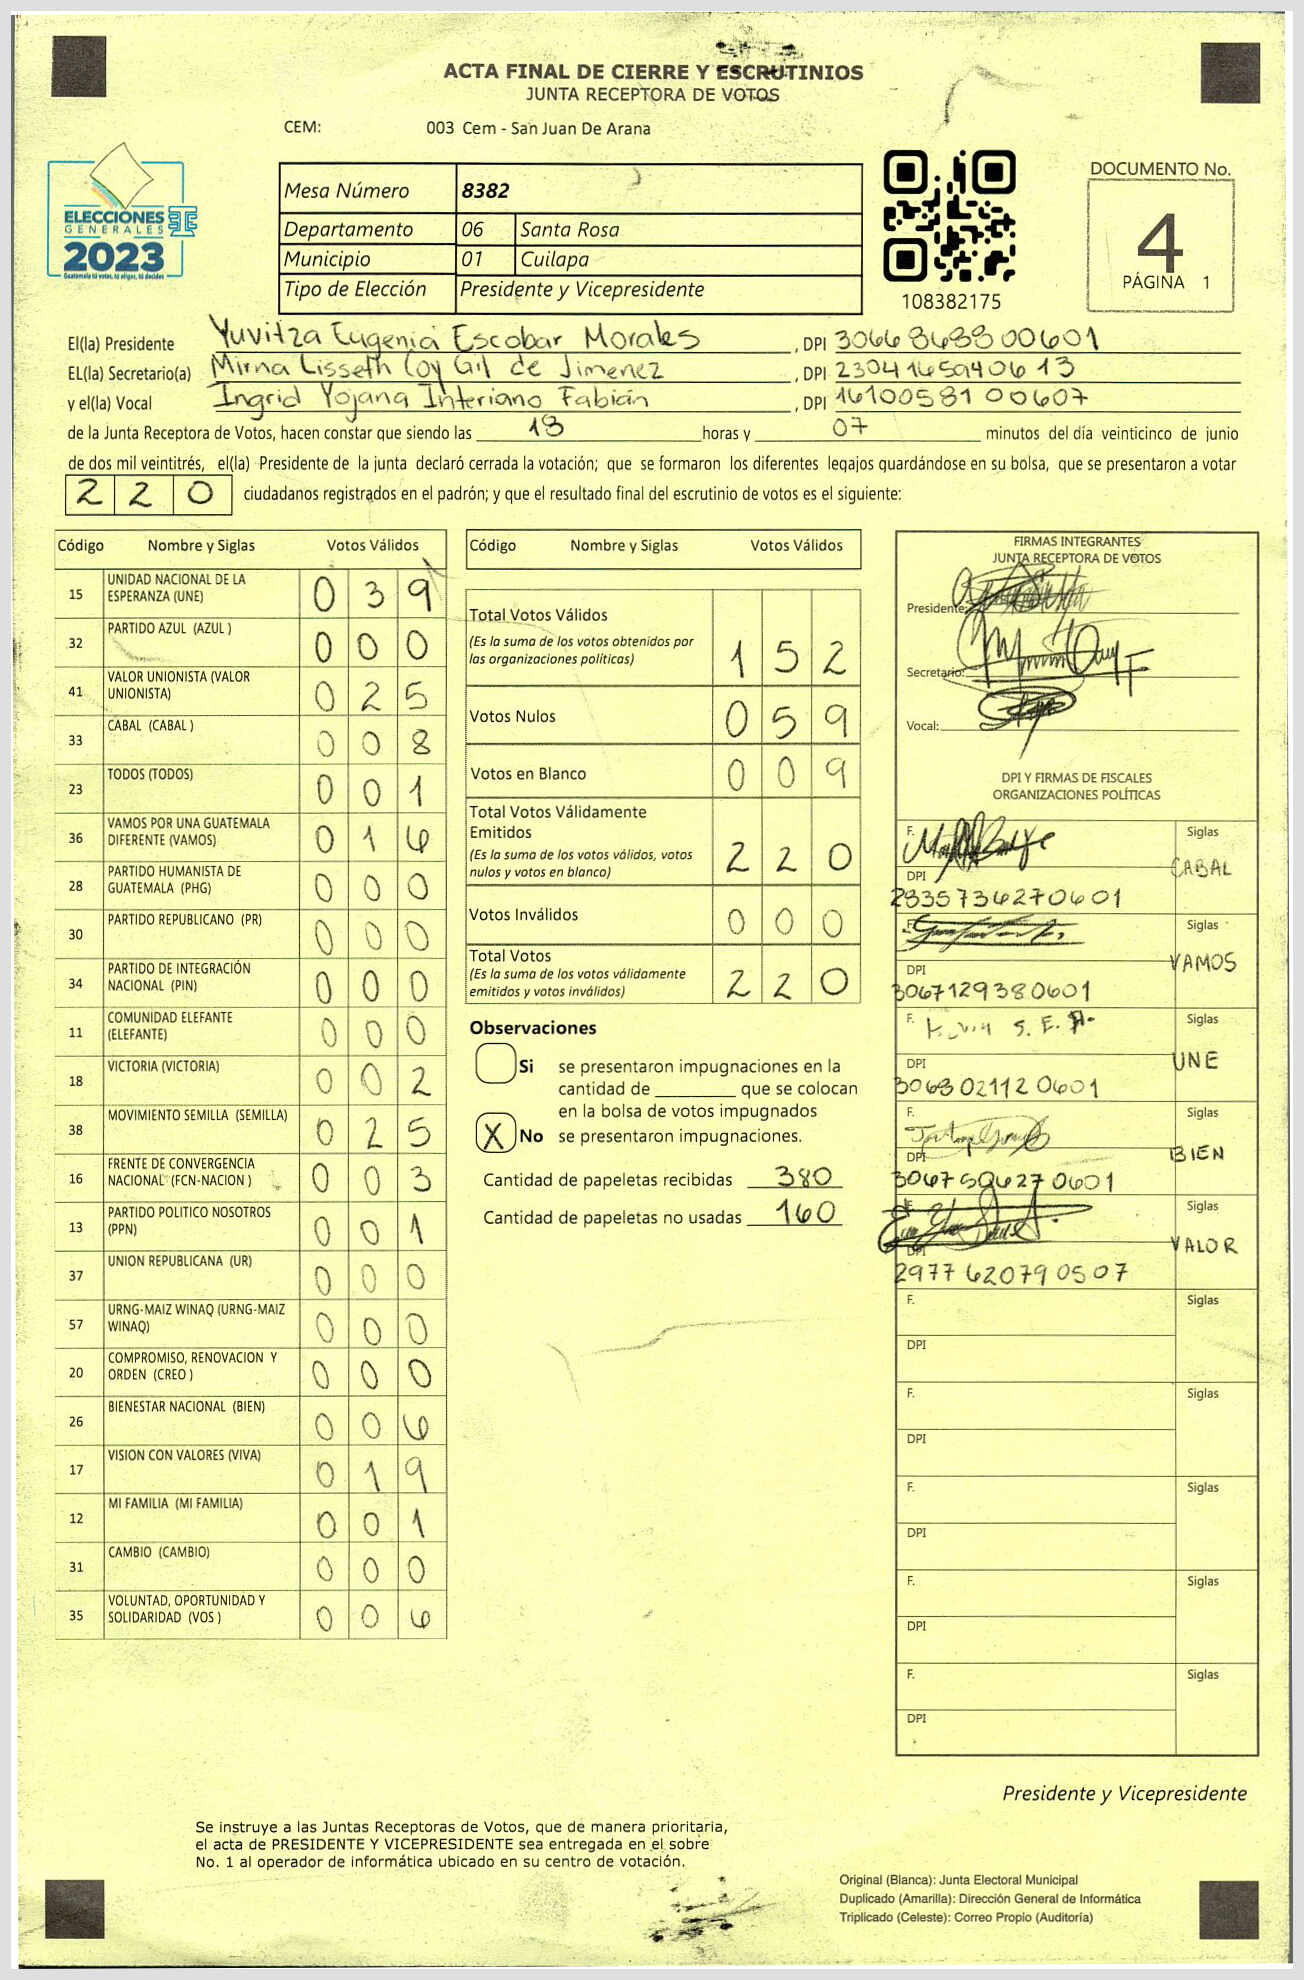 ACTA FINAL DE CIERRE Y ESCRUTINIOS
JUNTA RECEPTORA DE VOTOS
CEM: 003 Cem - San Juan De Arana
ELECCIONES
GENERALES
2023
Guatemala tú votas, tú eliges, tú decides
Mesa Número 8382
Departamento 06 Santa Rosa
Municipio 01 Cuilapa
Tipo de Elección Presidente y Vicepresidente
108382175
DOCUMENTO No.
4
PÁGINA 1
El(la) Presidente Yuvitza Eugenia Escobar Morales, DPI 3066848800601
EL(la) Secretario(a) Mirna Lisseth Coy Gil de Jimenez, DPI 2304165940613
y el(la) Vocal Ingrid Yojana Interiano Fabián, DPI 1610058100607
de la Junta Receptora de Votos, hacen constar que siendo las 18 horas y 07 minutos del día veinticinco de junio
de dos mil veintitrés, el(la) Presidente de la junta declaró cerrada la votación; que se formaron los diferentes legajos guardándose en su bolsa, que se presentaron a votar
220 ciudadanos registrados en el padrón; y que el resultado final del escrutinio de votos es el siguiente:
Código Nombre y Siglas Votos Válidos
15 UNIDAD NACIONAL DE LA ESPERANZA (UNE) 039
32 PARTIDO AZUL (AZUL ) 000
41 VALOR UNIONISTA (VALOR UNIONISTA) 025
33 CABAL (CABAL ) 008
23 TODOS (TODOS) 001
36 VAMOS POR UNA GUATEMALA DIFERENTE (VAMOS) 016
28 PARTIDO HUMANISTA DE GUATEMALA (PHG) 000
30 PARTIDO REPUBLICANO (PR) 000
34 PARTIDO DE INTEGRACIÓN NACIONAL (PIN) 000
11 COMUNIDAD ELEFANTE (ELEFANTE) 000
18 VICTORIA (VICTORIA) 002
38 MOVIMIENTO SEMILLA (SEMILLA) 025
16 FRENTE DE CONVERGENCIA NACIONAL (FCN-NACION ) 003
13 PARTIDO POLITICO NOSOTROS (PPN) 001
37 UNION REPUBLICANA (UR) 000
57 URNG-MAIZ WINAQ (URNG-MAIZ WINAQ) 000
20 COMPROMISO, RENOVACION Y ORDEN (CREO ) 000
26 BIENESTAR NACIONAL (BIEN) 006
17 VISION CON VALORES (VIVA) 019
12 MI FAMILIA (MI FAMILIA) 001
31 CAMBIO (CAMBIO) 000
35 VOLUNTAD, OPORTUNIDAD Y SOLIDARIDAD (VOS ) 006
Código Nombre y Siglas Votos Válidos
Total Votos Válidos
(Es la suma de los votos obtenidos por
las organizaciones políticas) 152
Votos Nulos 059
Votos en Blanco 009
Total Votos Válidamente
Emitidos
(Es la suma de los votos válidos, votos
nulos y votos en blanco) 220
Votos Inválidos 000
Total Votos
(Es la suma de los votos válidamente
emitidos y votos inválidos) 220
Observaciones
Si se presentaron impugnaciones en la
cantidad de ________ que se colocan
en la bolsa de votos impugnados
X No se presentaron impugnaciones.
Cantidad de papeletas recibidas 380
Cantidad de papeletas no usadas 160
FIRMAS INTEGRANTES
JUNTA RECEPTORA DE VOTOS
Presidente:
Secretario:
Vocal:
DPI Y FIRMAS DE FISCALES
ORGANIZACIONES POLÍTICAS
F. Siglas
CABAL
DPI
2335736270601
F. Siglas
VAMOS
DPI
3067129380601
F. S. E. A. Siglas
UNE
DPI
3068021120601
F. Siglas
BIEN
DPI
3067506270601
F. Siglas
VALOR
DPI
2977620790507
F. Siglas
DPI
F. Siglas
DPI
F. Siglas
DPI
F. Siglas
DPI
F. Siglas
DPI
Presidente y Vicepresidente
Se instruye a las Juntas Receptoras de Votos, que de manera prioritaria,
el acta de PRESIDENTE Y VICEPRESIDENTE sea entregada en el sobre
No. 1 al operador de informática ubicado en su centro de votación.
Original (Blanca): Junta Electoral Municipal
Duplicado (Amarilla): Dirección General de Informática
Triplicado (Celeste): Correo Propio (Auditoría)